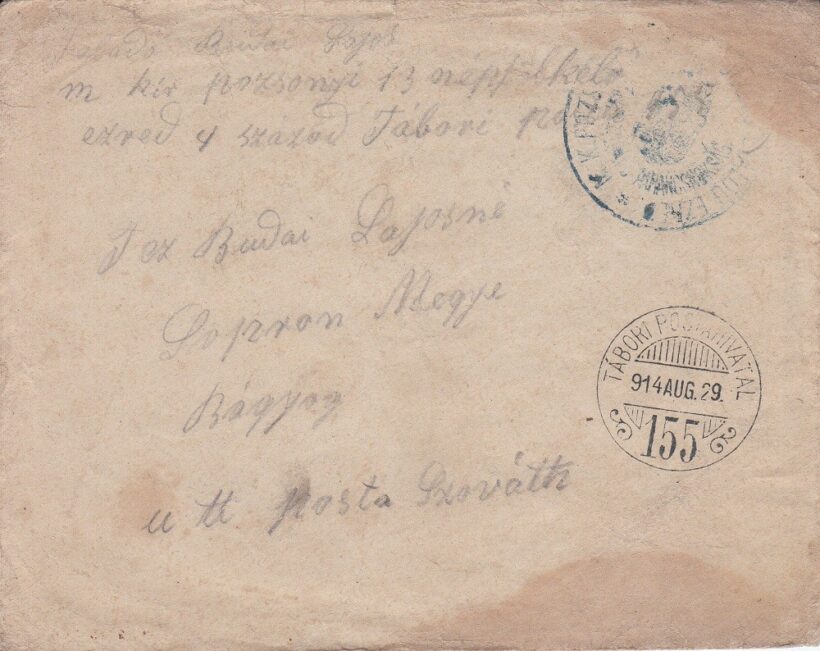 Feladó Budai Lajos
m kir pozsonyi 13 népfelkelő
ezred 4 század Tábori
Budai Lajosné
Sopron Megye
Bágyog
u tt posta Szováth
TÁBORI POSTAHIVATAL
914 AUG. 29.
155